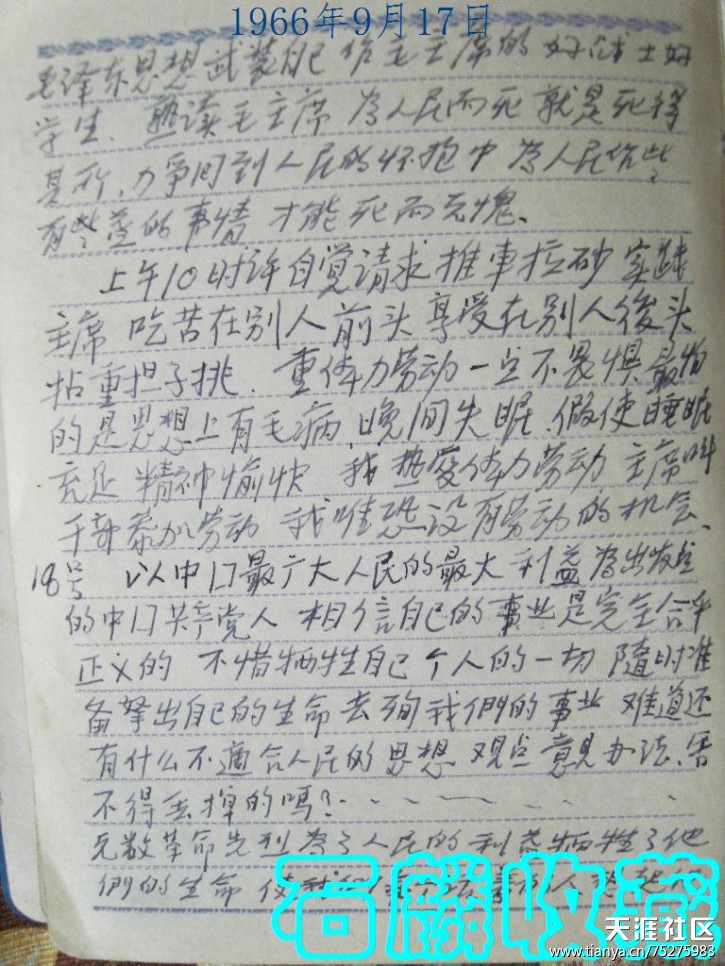 1966年9月17日
毛泽东思想武装自己 作毛主席的好战士好
学生、熟读毛主席 為人民而死 就是死得
其所、力争回到人民的怀抱中 為人民作些
有益的事情 才能死而无愧、
上午10时许自觉请求推車拉砂 实践
主席 吃苦在别人前头 享受在别人後头
拈重担子挑、重体力劳动一点不畏惧 最怕
的是思想上有毛病、晚间失眠、假使睡眠
充足 精神愉快 我热爱体力劳动 主席叫
干部参加劳动 我唯恐没有劳动的机会、
18号 以中囗最广大人民的最大利益為出发点
的中囗共产党人 相信自己的事业是完全合乎
正义的 不惜牺牲自己个人的一切 随时准
备拏出自己的生命去殉我們的事业 难道还
有什么不適合人民的思想 观点 意見 办法、舍
不得丢掉的嗎?
无数革命先烈為了人民的利益牺牲了他
們的生命 使我们
石麟收藏
天涯社区
www.tianya.cn/75275983